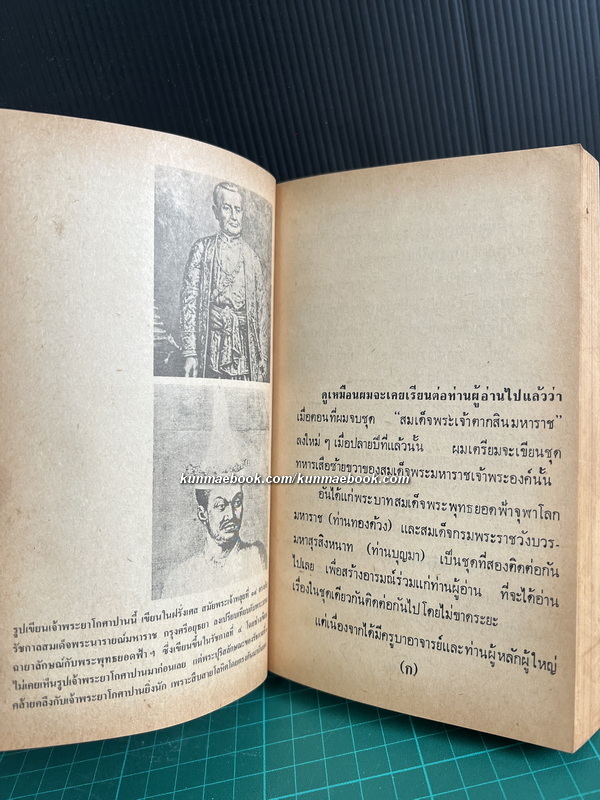 รูปเขียนเจ้าพระยาโกศาปานนี้ เขียนในฝรั่งเศส สมัยพระเจ้าหลุยที่ ๑๔
รัชกาลสมเด็จพระนารายณ์มหาราช กรุงศรีอยุธยา ลงเปรียบเทียบกับพระ
ฉายาลักษณ์กับพระพุทธยอดฟ้าฯ ซึ่งเขียนขึ้นในรัชกาลที่ ๔
ไม่เคยเห็นรูปเจ้าพระยาโกศาปานมาก่อนเลย แต่พระปฏิลักษณะของรัชกาลที่
คล้ายคลึงกับเจ้าพระยาโกศาปานยิ่งนัก เพราะสืบสายโลหิตโดยตรง
kunmaebook.com/kunmaebook.com
ดูเหมือนผมจะเคยเรียนต่อท่านผู้อ่านไปแล้วว่า
เมื่อตอนที่ผมจบชุด "สมเด็จพระเจ้าตากสินมหาราช"
ลงใหม่ ๆ เมื่อปลายปีที่แล้วนั้น ผมเตรียมจะเขียนชุด
ทหารเสือซ้ายขวาของสมเด็จพระมหาราชเจ้าพระองค์นั้น
อันได้แก่พระบาทสมเด็จพระพุทธยอดฟ้าจุฬาโลก
มหาราช (ท่านทองด้วง) และสมเด็จกรมพระราชวังบวร-
มหาสุรสิงหนาท (ท่านบุญมา) เป็นชุดที่สองติดต่อกัน
ไปเลย เพื่อสร้างอารมณ์ร่วมแก่ท่านผู้อ่าน ที่จะได้อ่าน
เรื่องในชุดเดียวกันติดต่อกันไป โดยไม่ขาดระยะ
แต่เนื่องจากได้มีครูบาอาจารย์และท่านผู้หลักผู้ใหญ่
(ก)